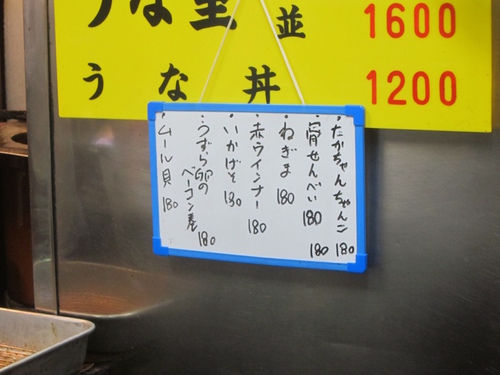 うな重 並 1600
うな丼 1200
・たかちゃんちゃんこ 180
・骨せんべい 180
180
・ねぎま 180
・赤ウインナー 180
・いかげそ 180
・うずら卵の
ベーコン巻 180
・ムール貝 180